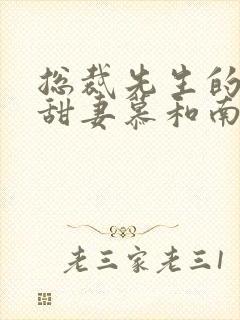 总裁先生的
甜妻慕和南
老三家老三1